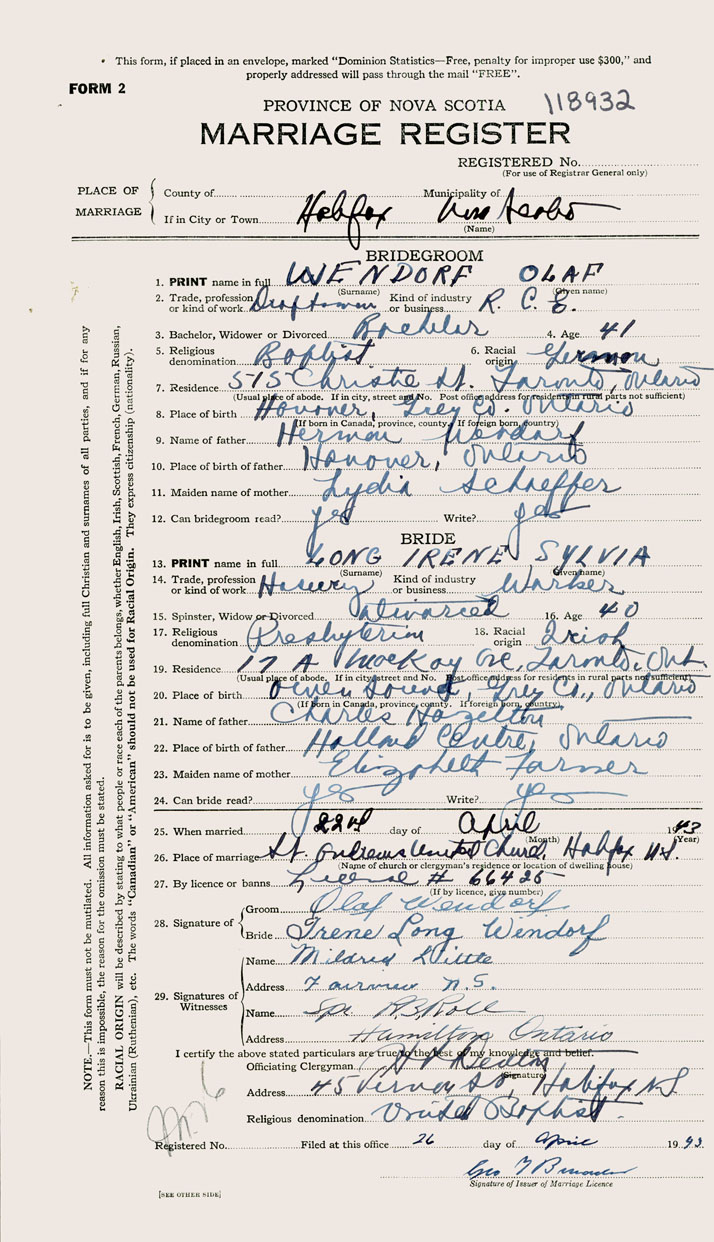 • This form, if placed in an envelope, marked "Dominion Statistics—Free, penalty for improper use $300," and
properly addressed will pass through the mail "FREE".
FORM 2
PROVINCE OF NOVA SCOTIA 118932
MARRIAGE REGISTER
REGISTERED No.
(For use of Registrar General only)
PLACE OF MARRIAGE
County of Municipality of
If in City or Town Halifax Nova Scotia
(Name)
BRIDEGROOM
1. PRINT name in full WENDORF OLAF
(Surname) (Given name)
2. Trade, profession or kind of work Draftsman Kind of industry or business R. C. E.
3. Bachelor, Widower or Divorced Bachelor 4. Age 41
5. Religious denomination Baptist 6. Racial origin German
7. Residence 575 Christie St. Toronto, Ontario
(Usual place of abode. If in city, street and No. Post office address for residents in rural parts not sufficient)
8. Place of birth Hanover, Grey Co. Ontario
(If born in Canada, province, county. If foreign born, country)
9. Name of father Herman Wendorf
10. Place of birth of father Hanover, Ontario
11. Maiden name of mother Lydia Schaeffer
12. Can bridegroom read? yes Write? yes
BRIDE
13. PRINT name in full LONG IRENE SYLVIA
(Surname) (Given name)
14. Trade, profession or kind of work Kind of industry or business Worker
15. Spinster, Widow or Divorced Divorced 16. Age 40
17. Religious denomination Presbyterian 18. Racial origin Irish
19. Residence 17 A MacKay Ave, Toronto, Ont.
(Usual place of abode. If in city street and No. Post office address for residents in rural parts not sufficient)
20. Place of birth Owen Sound, Grey Co., Ontario
(If born in Canada, province, county. If foreign born, country)
21. Name of father Charles Hazelton
22. Place of birth of father Holland Centre, Ontario
23. Maiden name of mother Elizabeth Farmer
24. Can bride read? yes Write? yes
25. When married 22nd day of April 1943
(Month) (Year)
26. Place of marriage St. Andrews United Church, Halifax N.S.
(Name of church or clergyman's residence or location of dwelling house)
27. By licence or banns License # 66425
(If by licence, give number)
28. Signature of
Groom Olaf Wendorf
Bride Irene Long Windorf
29. Signatures of Witnesses
Name Mildred
Address Fairview N.S.
Name Spr.
Address Hamilton Ontario
I certify the above stated particulars are true to the best of my knowledge and belief.
Officiating Clergyman
(Signature)
Address 45 Vernon St., Halifax N.S.
Religious denomination United Baptist.
Registered No. Filed at this office 26 day of April 1943.
Geo
Signature of Issuer of Marriage Licence
[SEE OTHER SIDE]
NOTE.—This form must not be mutilated. All information asked for is to be given, including full Christian and surnames of all parties, and if for any
reason this is impossible, the reason for the omission must be stated.
RACIAL ORIGIN will be described by stating to what people or race each of the parents belongs, whether English, Irish, Scottish, French, German, Russian,
Ukrainian (Ruthenian), etc. The words "Canadian" or "American" should not be used for Racial Origin. They express citizenship (nationality).